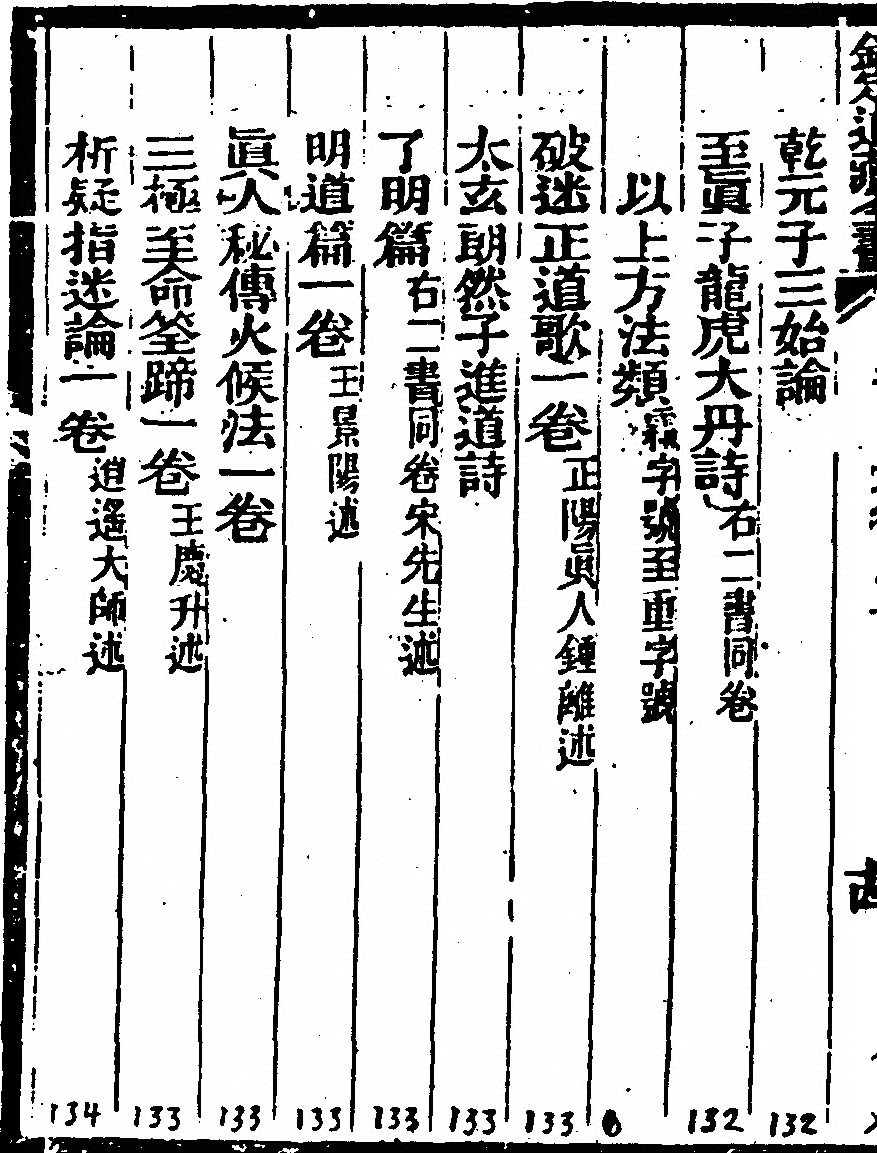 乾元子三始論
至眞子龍虎大丹詩 右二書同卷
以上方法類 霜字號至重字號
破迷正道歌一卷 正陽眞人鍾離述
太玄朗然子進道詩
了明篇 右二書同卷宋先生述
明道篇一卷 王景陽述
眞人秘傳火候法一卷
三極至命筌蹄一卷 王慶升述
析疑指迷論一卷 逍遙大師述
132
132
0
133
133
133
133
133
133
134